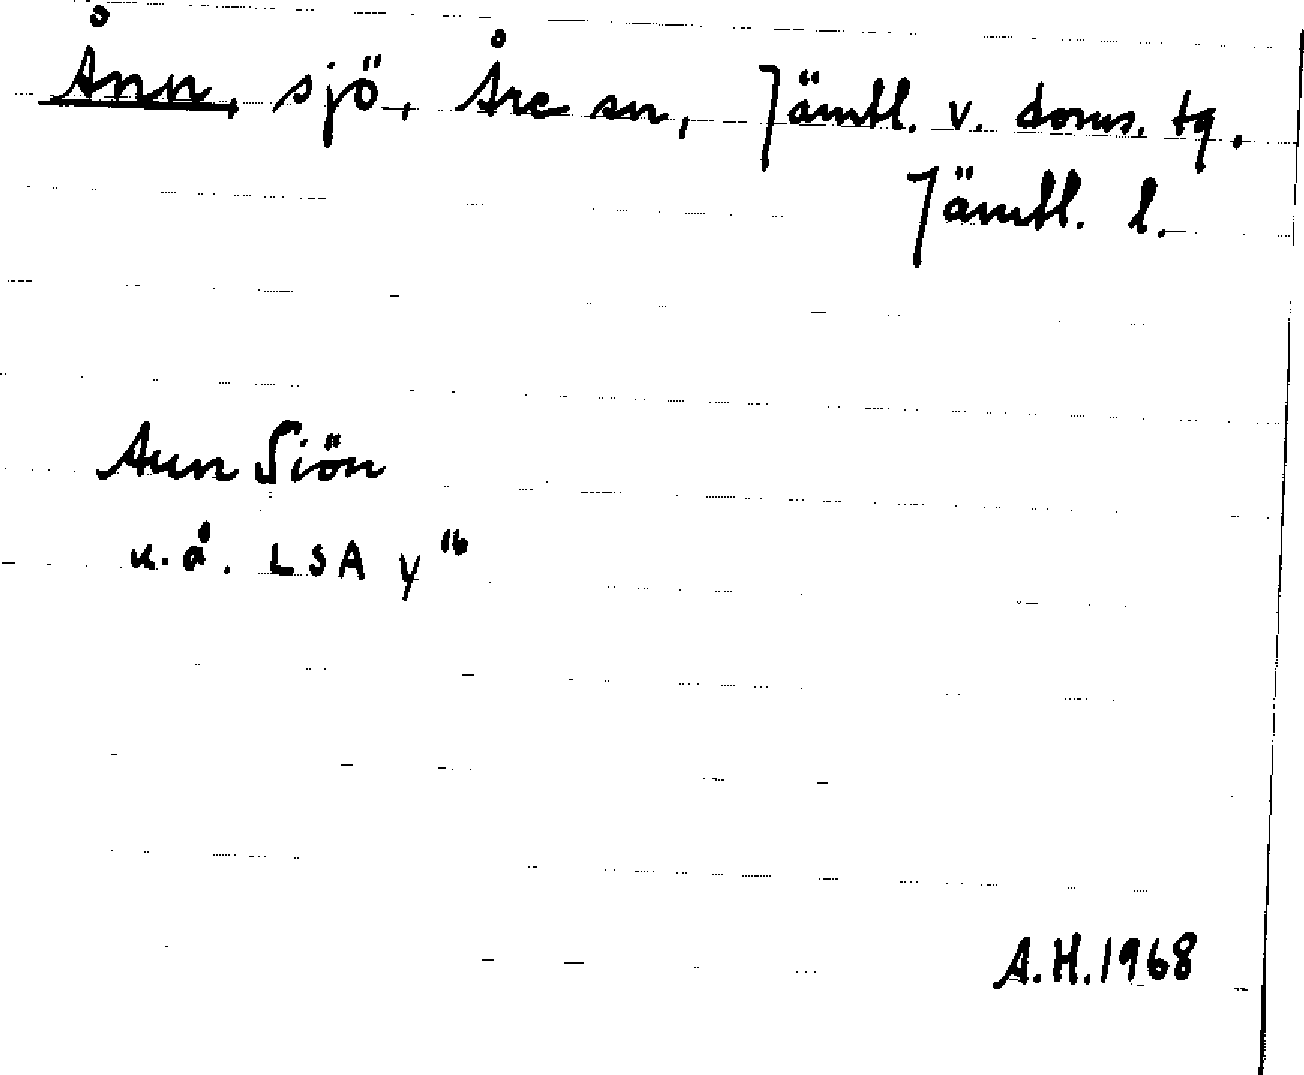 Ånn, sjö, Åre sn, Jämtl. v. doms. tg.
Jämtl. l.
Ann Siön
u. å. LSA y 16
A.H. 1968